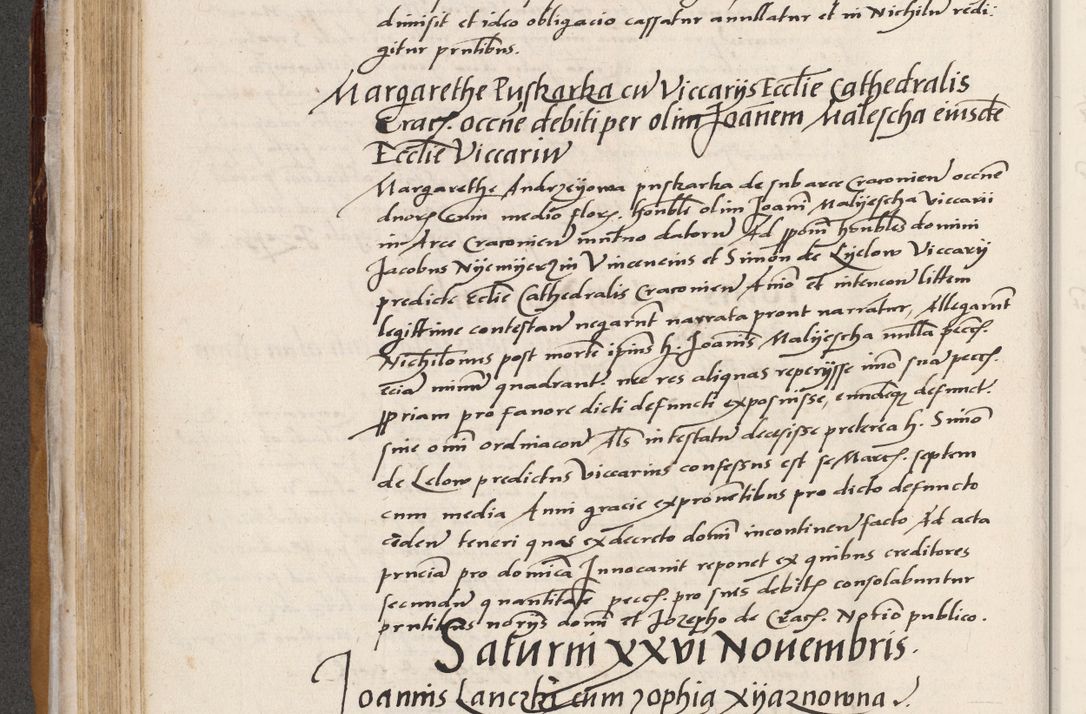 dimisit et ideo obligacio cassatur annullatur et in Nichilu redi:
gitur prntibus.
Margarethe Puskarka cu Viccarijs Ecclie Cathedralis
Crac. occne debiti per olim Joanem Malescha eiusde
Ecclie Viccariu
Margarethe Andrzeyowa puskarka de sub arce Cracovien occne
duor cum medio flor. honbli olim Joani Malijescha Viccarii
in Arce Cracovien mutuo dator Ad honbles domini
Jacobus Nijemijerzin Vincencius et Simon de Lijelow Viccarij
predicte Ecclie Cathedralis Cracovien Animo et intencion littem
legittime contestan negarnt narrata pront narratur, Allegarnt
Nichilomus post morte ipius h. Joanis Malijescha nulla pecc.
ecia minu quadrant. nec res aliquas reperijsse imo sua pecc.
priam pro fanore dicti defuncti exposuisse, eundeq defunct.
sine omi ordinacon Als intestatu decesisse preterea h. Simo
de Lelow predictus Viccarius confessus est se Marc. septem
cum media Anni gracie ex proventibus pro dicto defuncto
eiden teneri quas ex decreto domi incontinen facto Ad acta
prncia pro domica Innocauit reponet ex quibus creditores
secundu quantitate pecc. pro suis debit consolabuntur
prntibus norijs domi et Jozepho de Crac. Notrio publico.
Saturni XXVI Nouembris.
Joannis Lanczki cum zophia Xijaznowna